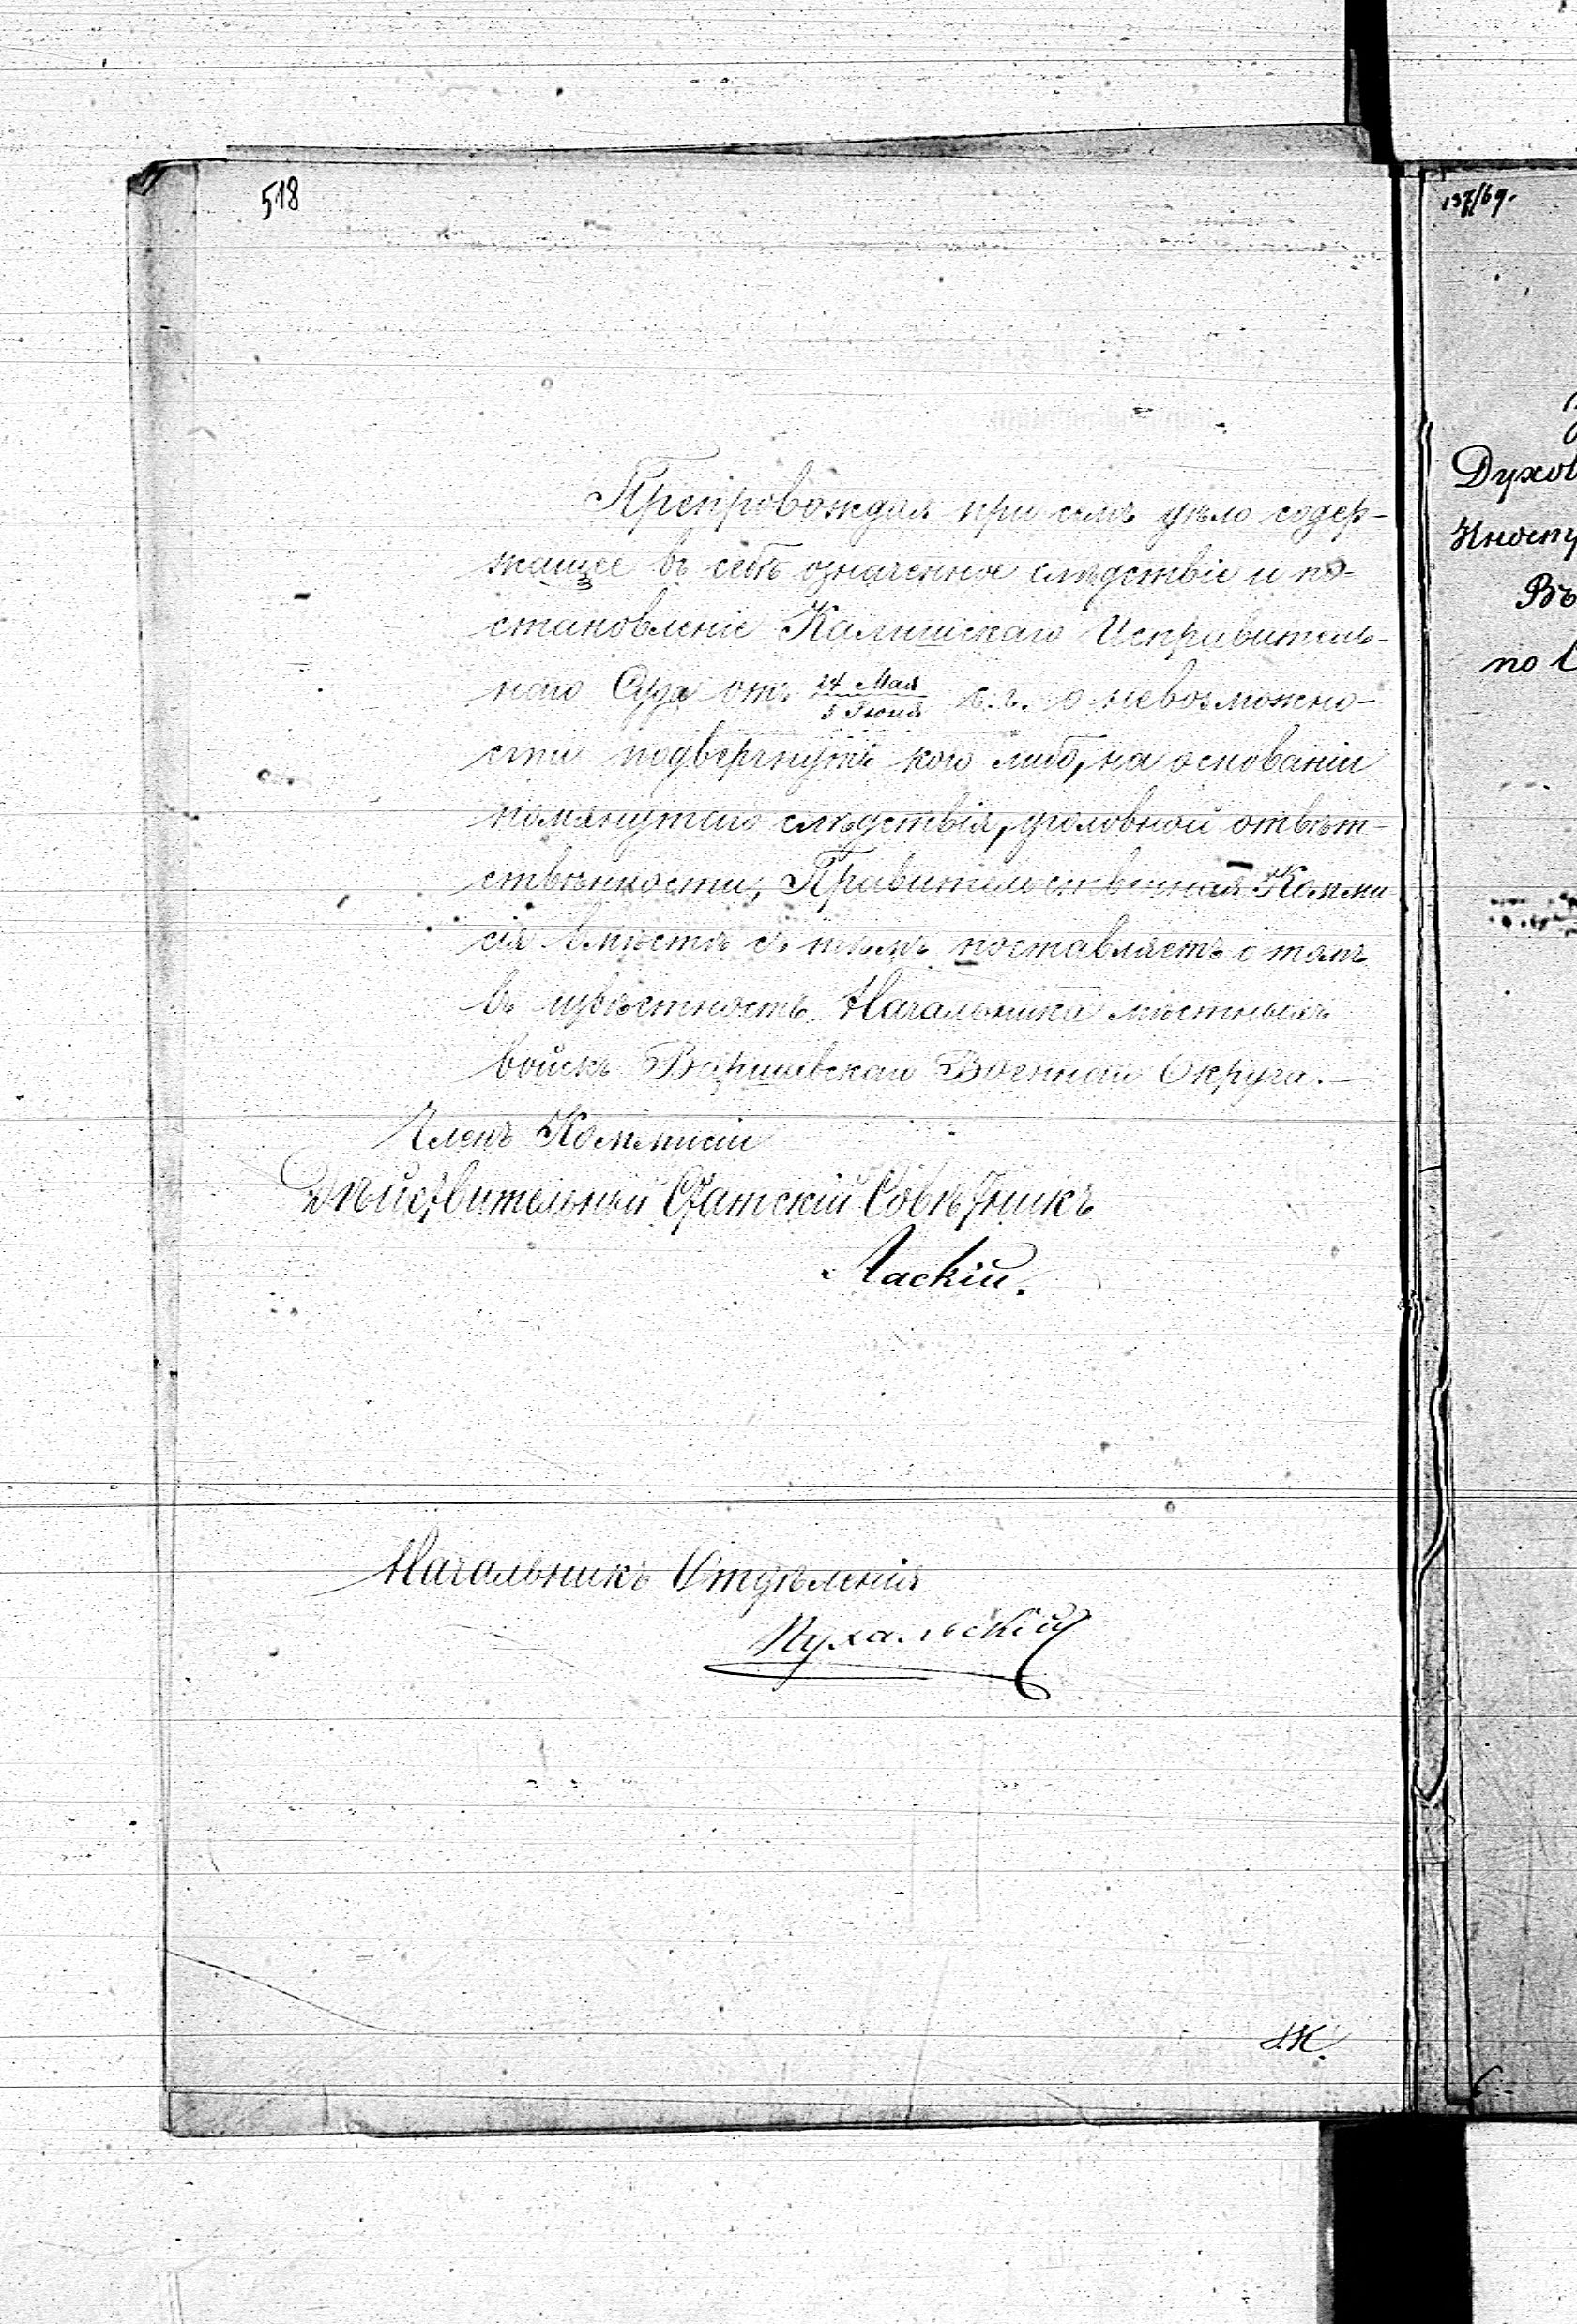 518
Препровождая при семъ дѣло содер-
жащее въ себѣ означенное слѣдствіе и по-
становленіе Калишскаго Исправитель-
наго Суда отъ 24 Мая / 5 Іюня с. г. о невозможно-
сти подвергнуть кого либо, на основаніи
помянутаго слѣдствія, уголовной отвѣт-
ственности, Правительственная Комми-
сія вмѣстѣ съ тѣмъ поставляетъ о томъ
въ извѣстность Начальника мѣстныхъ
войскъ Варшавскаго Военнаго Округа.—
Членъ Коммисіи
Дѣйствительный Статскій Совѣтникъ
Ласкій.
Начальникъ Отдѣленія
Пухальскій
Духов
Иност
Въ
по